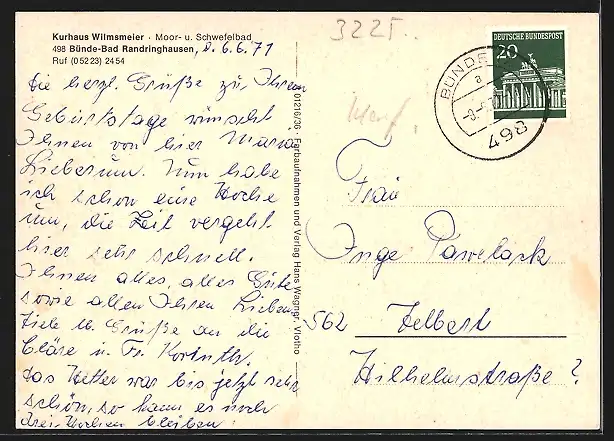 Kurhaus Wilmsmeier · Moor- u. Schwefelbad
498 Bünde-Bad Randringhausen, d. 6.6.71
Ruf (05223) 2454
die herzl. Grüße zu Ihrem
Geburtstage wünscht
Ihnen von hier Maria
Liebermn. Nun habe
ich schon eine Woche
um, die Zeit vergeht
hier sehr schnell.
Ihnen alles, alles Gute
sowie allen Ihren Lieben
Viele u. Grüße an die
Cläre u. Fr.
das Wetter war bis jetzt sehr
schön, so kann es noch
drei Wochen bleiben.
01216/36 · Farbaufnahmen und Verlag Hans Wagner, Vlotho
3225
DEUTSCHE BUNDESPOST
20
BÜNDE
a
498
Frau
Inge Pawelack
562 Velbert
Wilhelmstraße ?